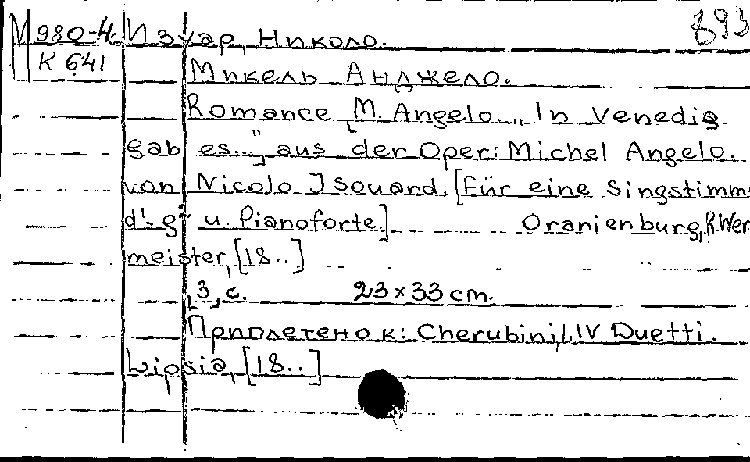 М 980-4 Изуар, Николо. 893
К 641
Микель Анджело.
Romance [M. Angelo „In Venedig
gab es..." aus der Oper: Michel Angelo.
von Nicolo Isouard. [Für eine Singstimm
d'-g" u. Pianoforte] Oranienburg, R. Wer
meister, [18..]
3 с. 23 x 33 cm.
Приплетено к: Cherubini, L. IV Duetti.
Lipsia, [18..]